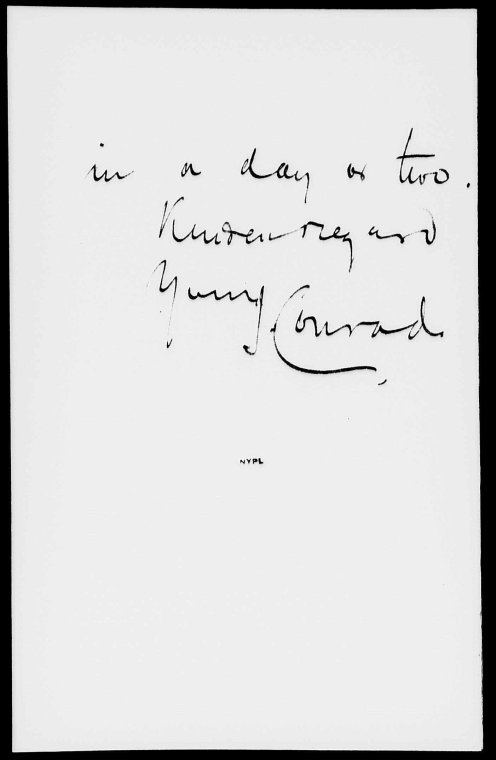 in a day or two.
Kindest regard
Yours J. Conrad.
NYPL